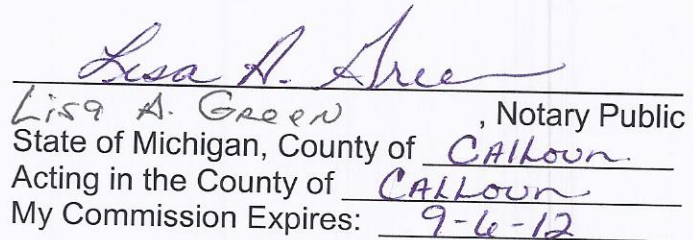 Lisa A. Green
Lisa A. Green, Notary Public
State of Michigan, County of Calhoun
Acting in the County of Calhoun
My Commission Expires: 9-6-12